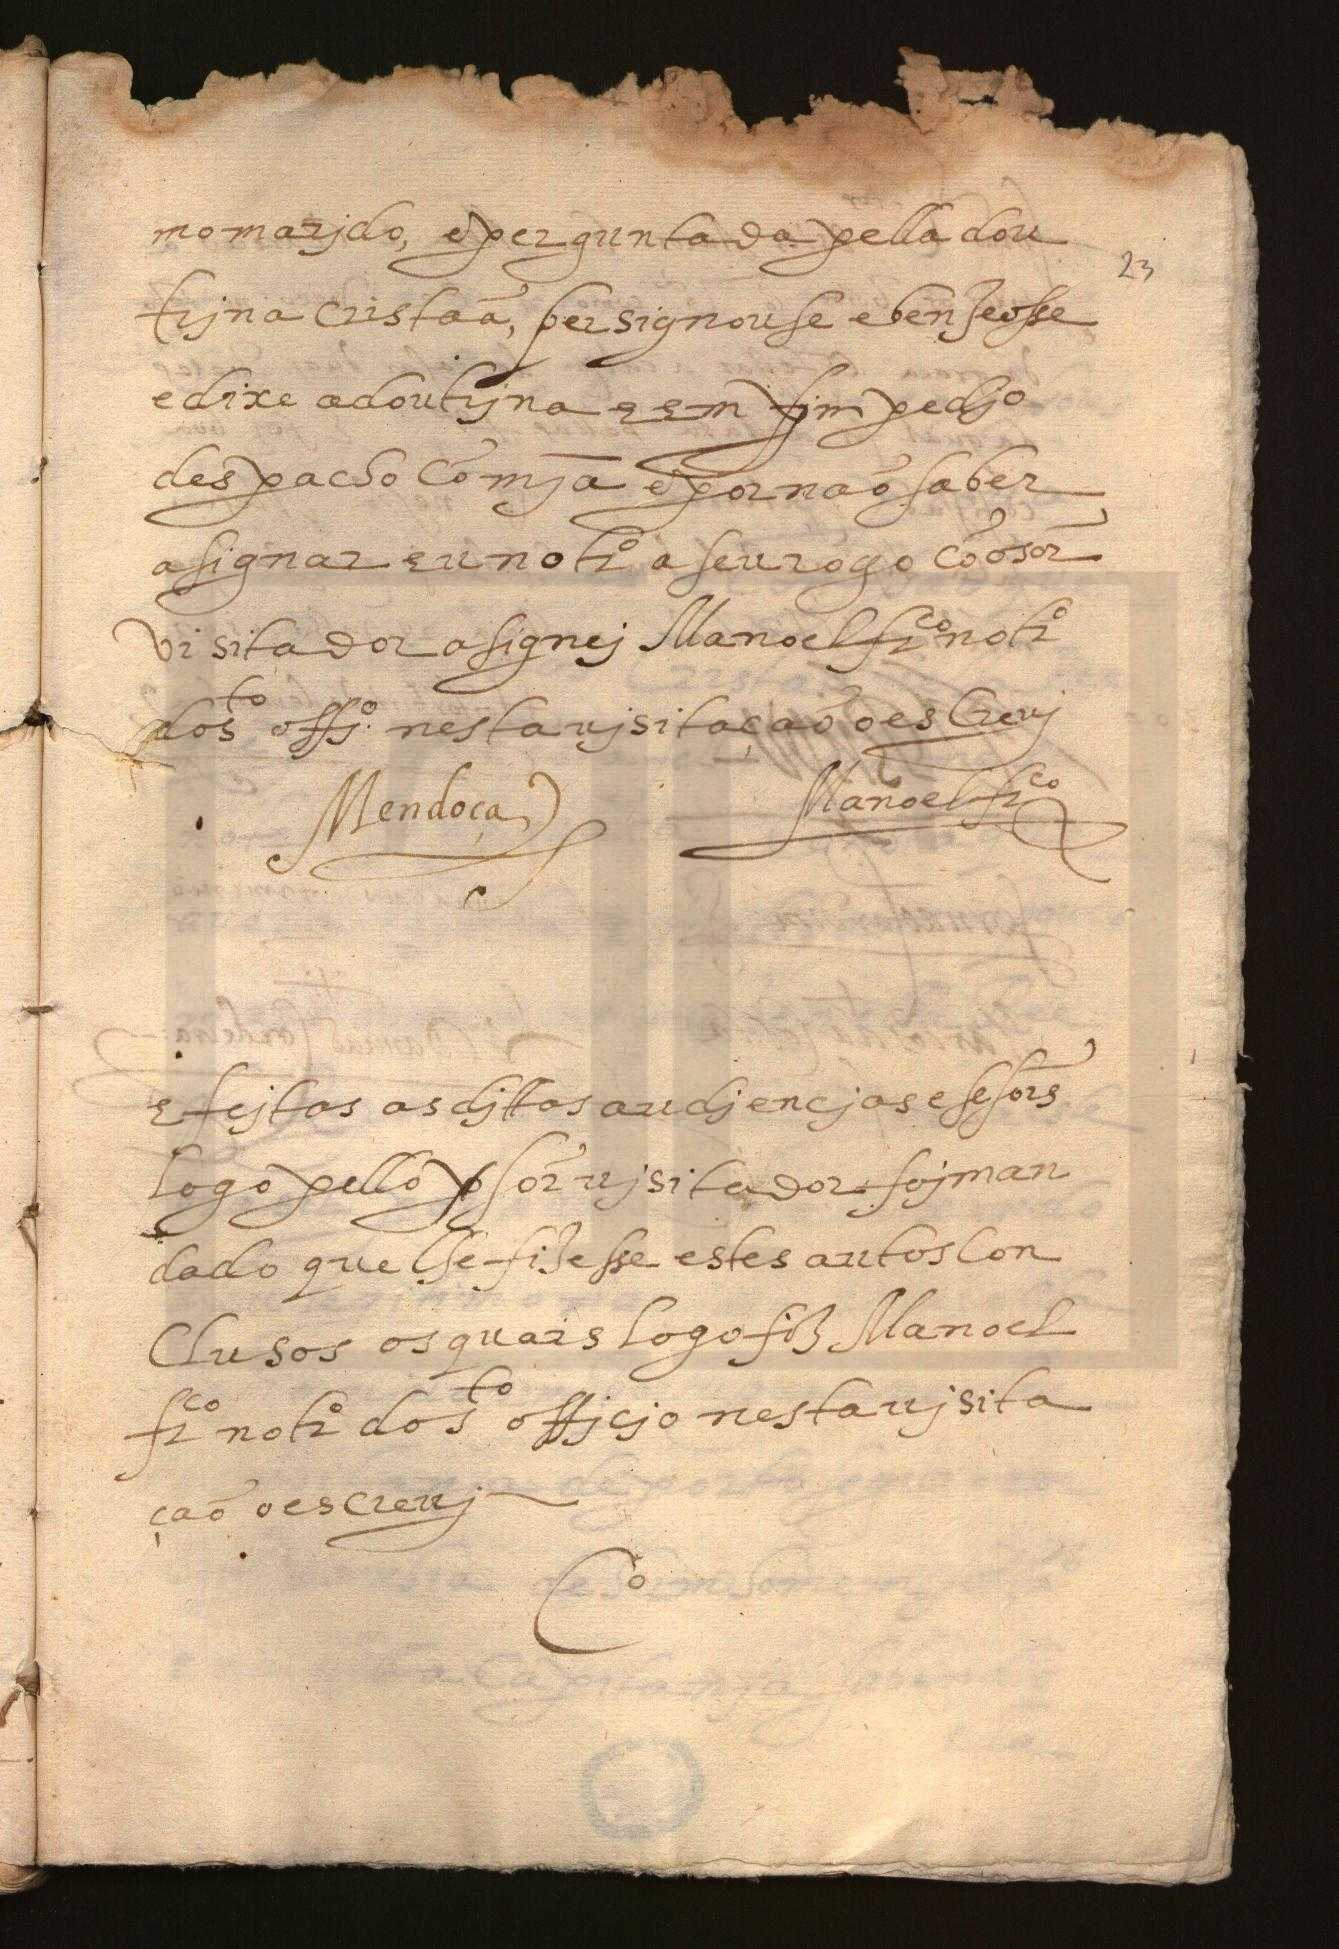 mo marjdo, e perguntada pella dou
23
trjna cristaã, persignouse e benzeosse
e dixe a doutrjna e em fim pedjo
despacho cõ mja e por não saber
asignar eu notro a seu rogo cõ o sor
visitador asignej Manoel frco notro
do sto offjo nesta vjsitação o escrevj
Mendoça Manoel frco
E fejtas as djttas audjencjas e sesõrs
logo pello sor vjsitador foj man
dado que lhe fizesse estes autos con
clusos os quais logo fiz Manoel
frco notro do sto officjo nesta vjsita
ção o escrevj
Co